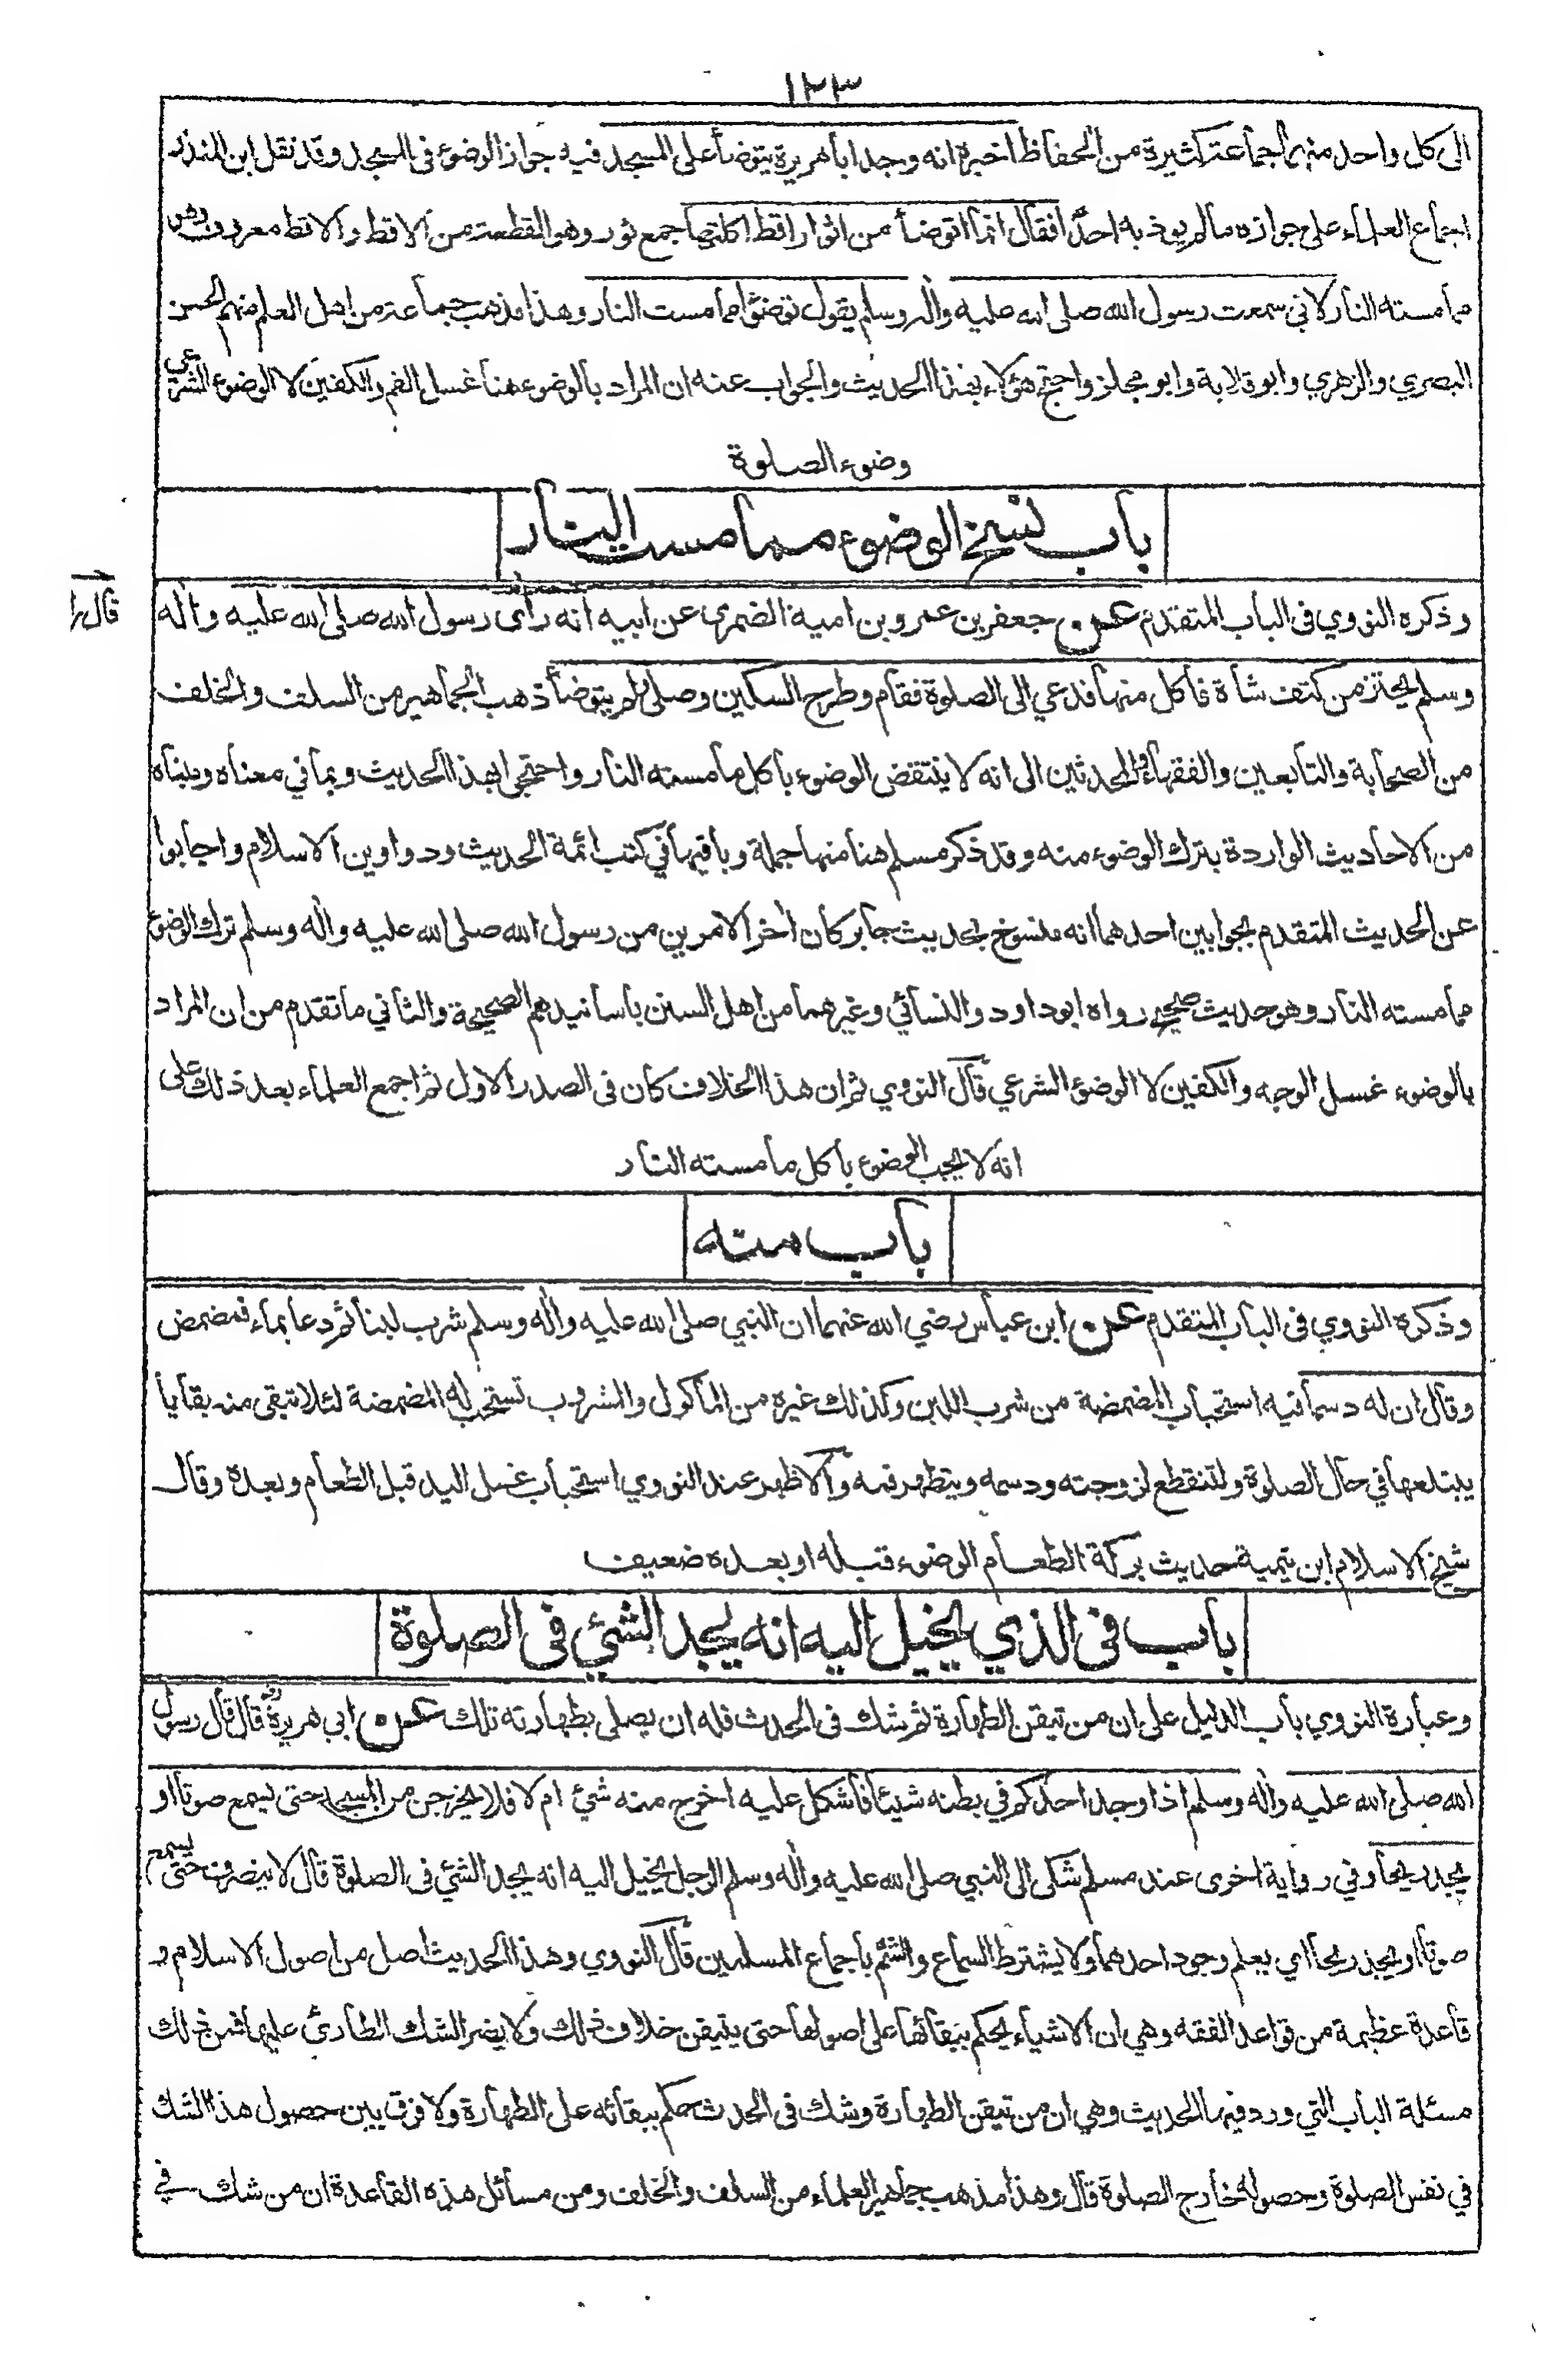 ١٢٣
الى كل واحد منهما جماعة كثيرة من الحفاظ اخبره انه وجد ابا هريرة يتوضأ على المسجد فيه جواز الوضوء فى المسجد وقد نقل ابن المنذر
اجماع العلماء على جوازه ما لم يوذ به احدًا فقال انما اتوضأ من اثوار اقط اكلتها جمع ثور وهو القطعة من الاقط والاقط معروف وهى
مما مسته النار لاني سمعت رسول الله صلى الله عليه واٰله وسلم يقول توضؤا مما مست النار وهذا مذهب جماعة من اهل العلم منهم الحسن
البصري والزهري وابو قلابة وابو مجلز واحتج هؤلاء بهذا الحديث والجواب عنه ان المراد بالوضوء هنا غسل الفم والكفين لا الوضوء الشرعي
وضوء الصلوة
باب نسخ الوضوء مما مست النار
وذكره النووي فى الباب المتقدم عن جعفر بن عمرو بن امية الضمري عن ابيه انه رأى رسول الله صلى الله عليه واٰله
قال را
وسلم يحتز من كتف شاة فاكل منها فدعي الى الصلوة فقام وطرح السكين وصلى ولم يتوضأ ذهب الجماهير من السلف والخلف
من الصحابة والتابعين والفقهاء والمحدثين الى انه لا ينتقض الوضوء باكل ما مسته النار واحتجوا بهذا الحديث وبما في معناه ومبناه
من الاحاديث الواردة بترك الوضوء منه وقد ذكر مسلم هنا منها جملة وباقيها في كتب ائمة الحديث ودواوين الاسلام واجابوا
عن الحديث المتقدم بجوابين احدهما انه منسوخ بحديث جابر كان اٰخر الامرين من رسول الله صلى الله عليه واٰله وسلم ترك الوضوء
مما مسته النار وهو حديث صحيح رواه ابو داود والنسائي وغيرهما من اهل السنن باسانيدهم الصحيحة والثاني ما تقدم من ان المراد
بالوضوء غسل الوجه والكفين لا الوضؤ الشرعي قال النووي ثم ان هذا الخلاف كان فى الصدر الاول ثم اجمع العلماء بعد ذلك على
انه لا يجب الوضوء باكل ما مسته النار
باب منه
وذكره النووي فى الباب المتقدم عن ابن عباس رضي الله عنهما ان النبي صلى الله عليه واٰله وسلم شرب لبنا ثم دعا بماء فمضمض
وقال ان له دسما فيه استحباب المضمضة من شرب اللبن وكذلك غيره من الماكول والمشروب تستحب له المضمضة لئلا تبقى منه بقايا
يبتلعها في حال الصلوة ولتنقطع لزوجته ودسمه ويتطهر فمه والاظهر عند النووي استحباب غسل اليد قبل الطعام وبعده وقال
شيخ الاسلام ابن تيمية حديث بركة الطعام الوضوء قبله او بعده ضعيف
باب فى الذي يخيل اليه انه يجد الشئ فى الصلوة
وعبارة النووي باب الدليل على ان من تيقن الطهارة ثم شك فى الحدث فله ان يصلى بطهارته تلك عن ابي هريرة رض قال قال رسول
الله صلى الله عليه واٰله وسلم اذا وجد احدكم في بطنه شيئا فاشكل عليه اخرج منه شئ ام لا فلا يخرجن من المسجد حتى يسمع صوتا او
يجد ريحا وفي رواية اخرى عند مسلم شكى الى النبي صلى الله عليه واٰله وسلم الرجل يخيل اليه انه يجد الشئ فى الصلوة قال لا ينصرف حتى يسمع
صوتا او يجد ريحا اي يعلم وجود احدهما ولا يشترط السماع والشم باجماع المسلمين قال النووي وهذا الحديث اصل من اصول الاسلام و
قاعدة عظيمة من قواعد الفقه وهي ان الاشياء يحكم ببقائها على اصولها حتى يتيقن خلاف ذلك ولا يضر الشك الطارئ عليها فمن ذلك
مسئلة الباب التي ورد فيها الحديث وهي ان من تيقن الطهارة وشك فى الحدث حكم ببقائه على الطهارة ولا فرق بين حصول هذا الشك
في نفس الصلوة وحصوله خارج الصلوة قال وهذا مذهب جماهير العلماء من السلف والخلف ومن مسائل هذه القاعدة ان من شك في